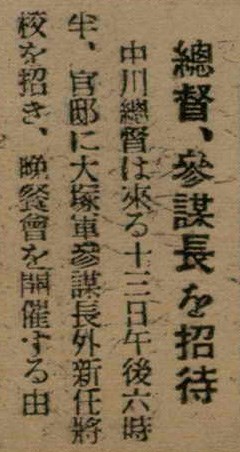 總督、參謀長を招待
中川總督は來る十三日午後六時
半、官邸に大塚軍參謀長外新任將
校を招き、晩餐會を開催する由